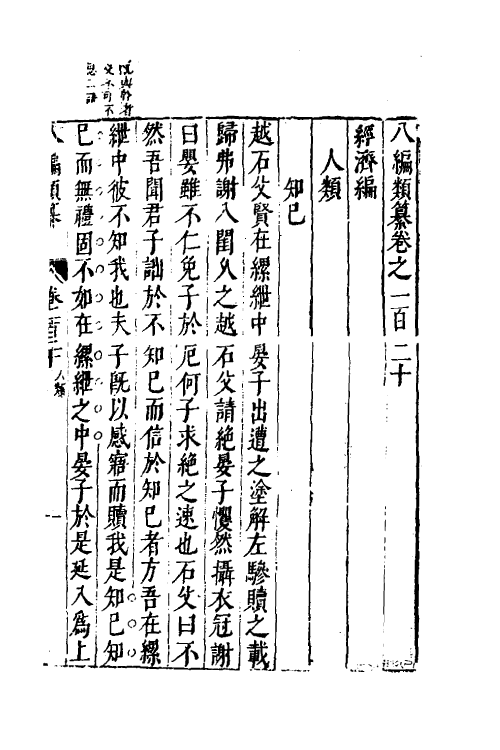 八編類纂卷之一百二十
經濟編
人類
知已
越石父賢在縲紲中晏子出遭之塗解左驂贖之載
歸弗謝入閨久之越石父請絕晏子懼然攝衣冠謝
曰嬰雖不仁免子於厄何子求絕之速也石父曰不
然吾聞君子詘於不知已而信於知已者方吾在縲
紲中彼不知我也夫子旣以感寤而贖我是知已知
已而無禮固不如在縲紲之中晏子於是延入爲上
八編類纂 卷一百二十 人類 一